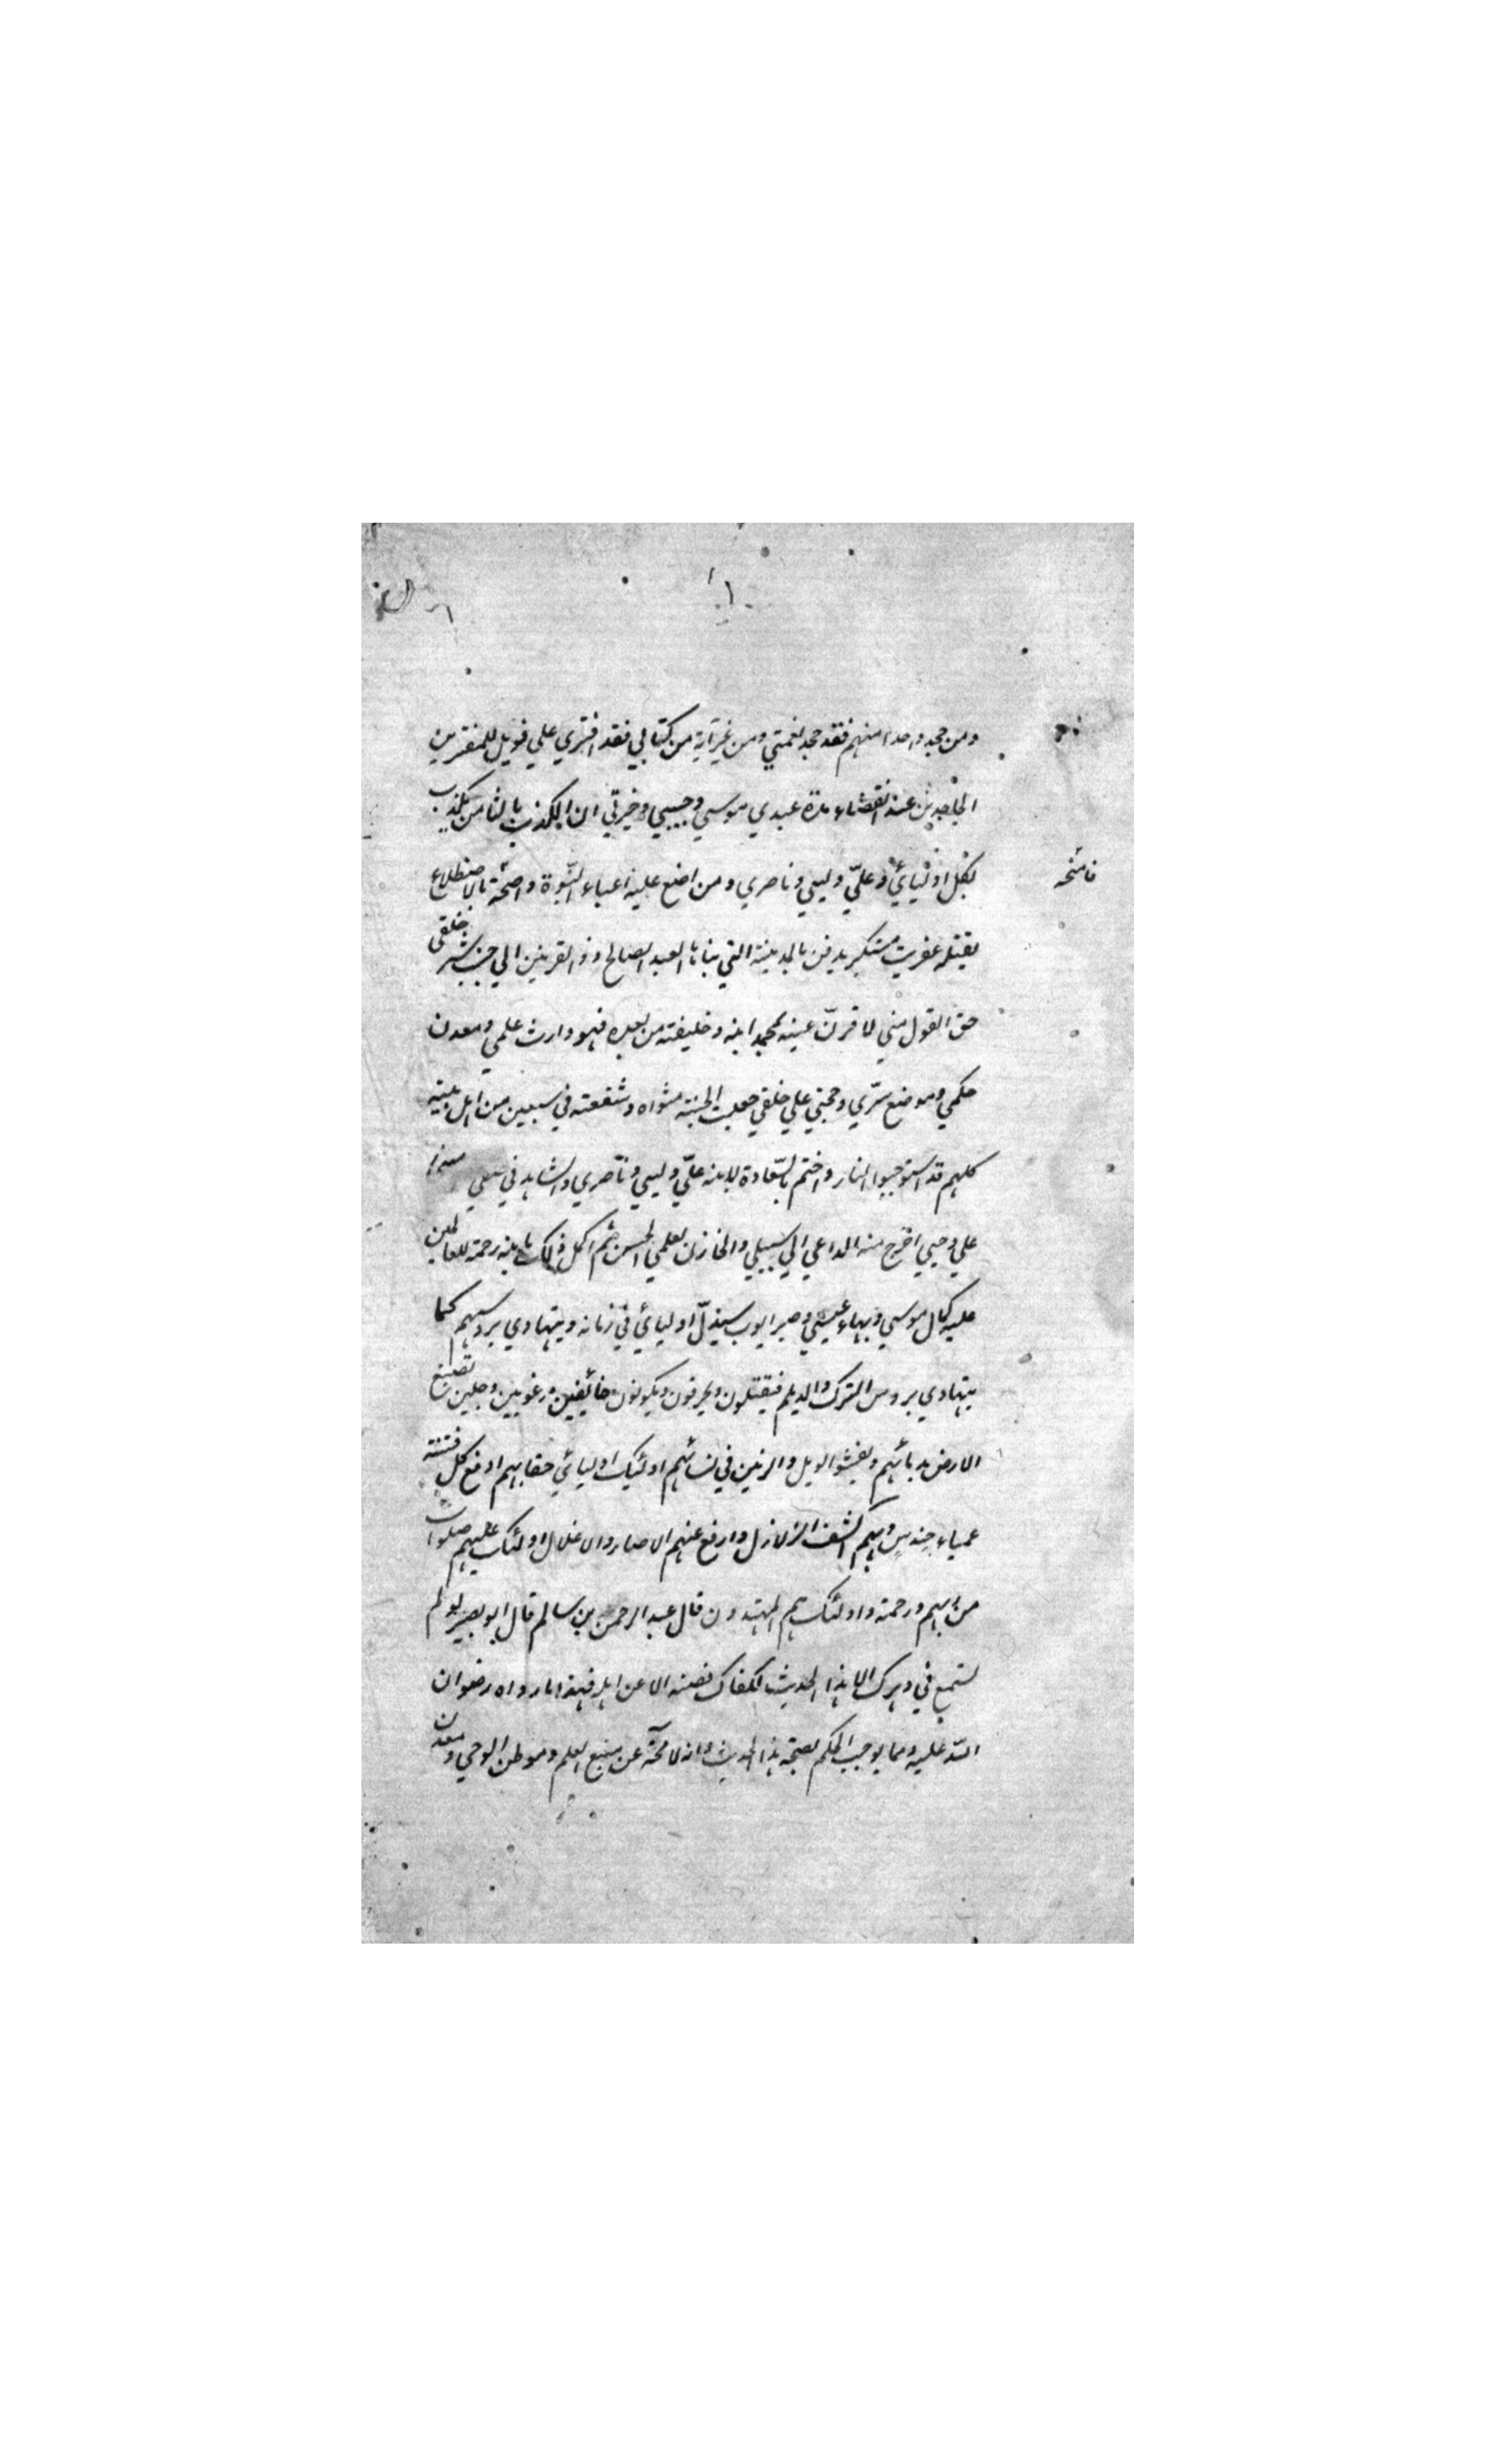 ومن جحد واحدا منهم فقد جحد نعمتي ومن غير آية من كتابي فقد افترى علي فويل للمفترين
الجاحدين عند انقضاء مدة عبدي موسي وحبيبي وخيرتي ان المكذب بالثامن مكذب
بكل اوليائي وعليّ وليي وناصري ومن اضع عليه اعباء النبوة وامنحه بالاضطلاع
فامنحه
يقتله عفريت مستكبر يدفن بالمدينة التي بناها العبد الصالح ذو القرنين الي جنب شر خلقي
حق القول مني لاقرنّ عينيه بمحمد ابنه وخليفته من بعده فهو وارث علمي ومعدن
حكمي وموضع سرّي وحجتي علي خلقي جعلت الجنة مثواه وشفعته في سبعين من اهل بيته
كلهم قد استوجبوا النار واختم بالسّعادة لابنه عليّ وليي وناصري والشاهد في خلقي
علي وحيي اخرج منه الداعي الي سبيلي والخازن لعلمي الحسن ثم اكمل ذلك بابنه رحمة للعالمين
عليه كمال موسي وبهاء عيسي وصبر ايوب سيذلّ اوليائي في زمانه ويتهادي بروسهم كما
يتهادي بروس الترك والديلم فيقتلون ويحرقون ويكونون خائفين مرعوبين وجلين تصبغ
الارض بدمائهم ويفشوا الويل والرنين في نسائهم اولئيك اوليائي حقا بهم ادفع كل فتنة
عمياء حندس وبهم اكشف الزلازل وارفع عنهم الاصار والاغلال اولئك عليهم صلوات
من ربهم ورحمة واولئك هم المهتدون قال عبد الرحمن بن سالم قال ابو بصير لو لم
تسمع في دهرك الا هذا الحديث لكفاك فصنه الا عن اهله فهذا ما رواه رضوان
اللّه عليه ومما يوجب الحكم بصحة هذا الحديث وانه لا محة عن منبع العلم وموطن الوحي ومعدن